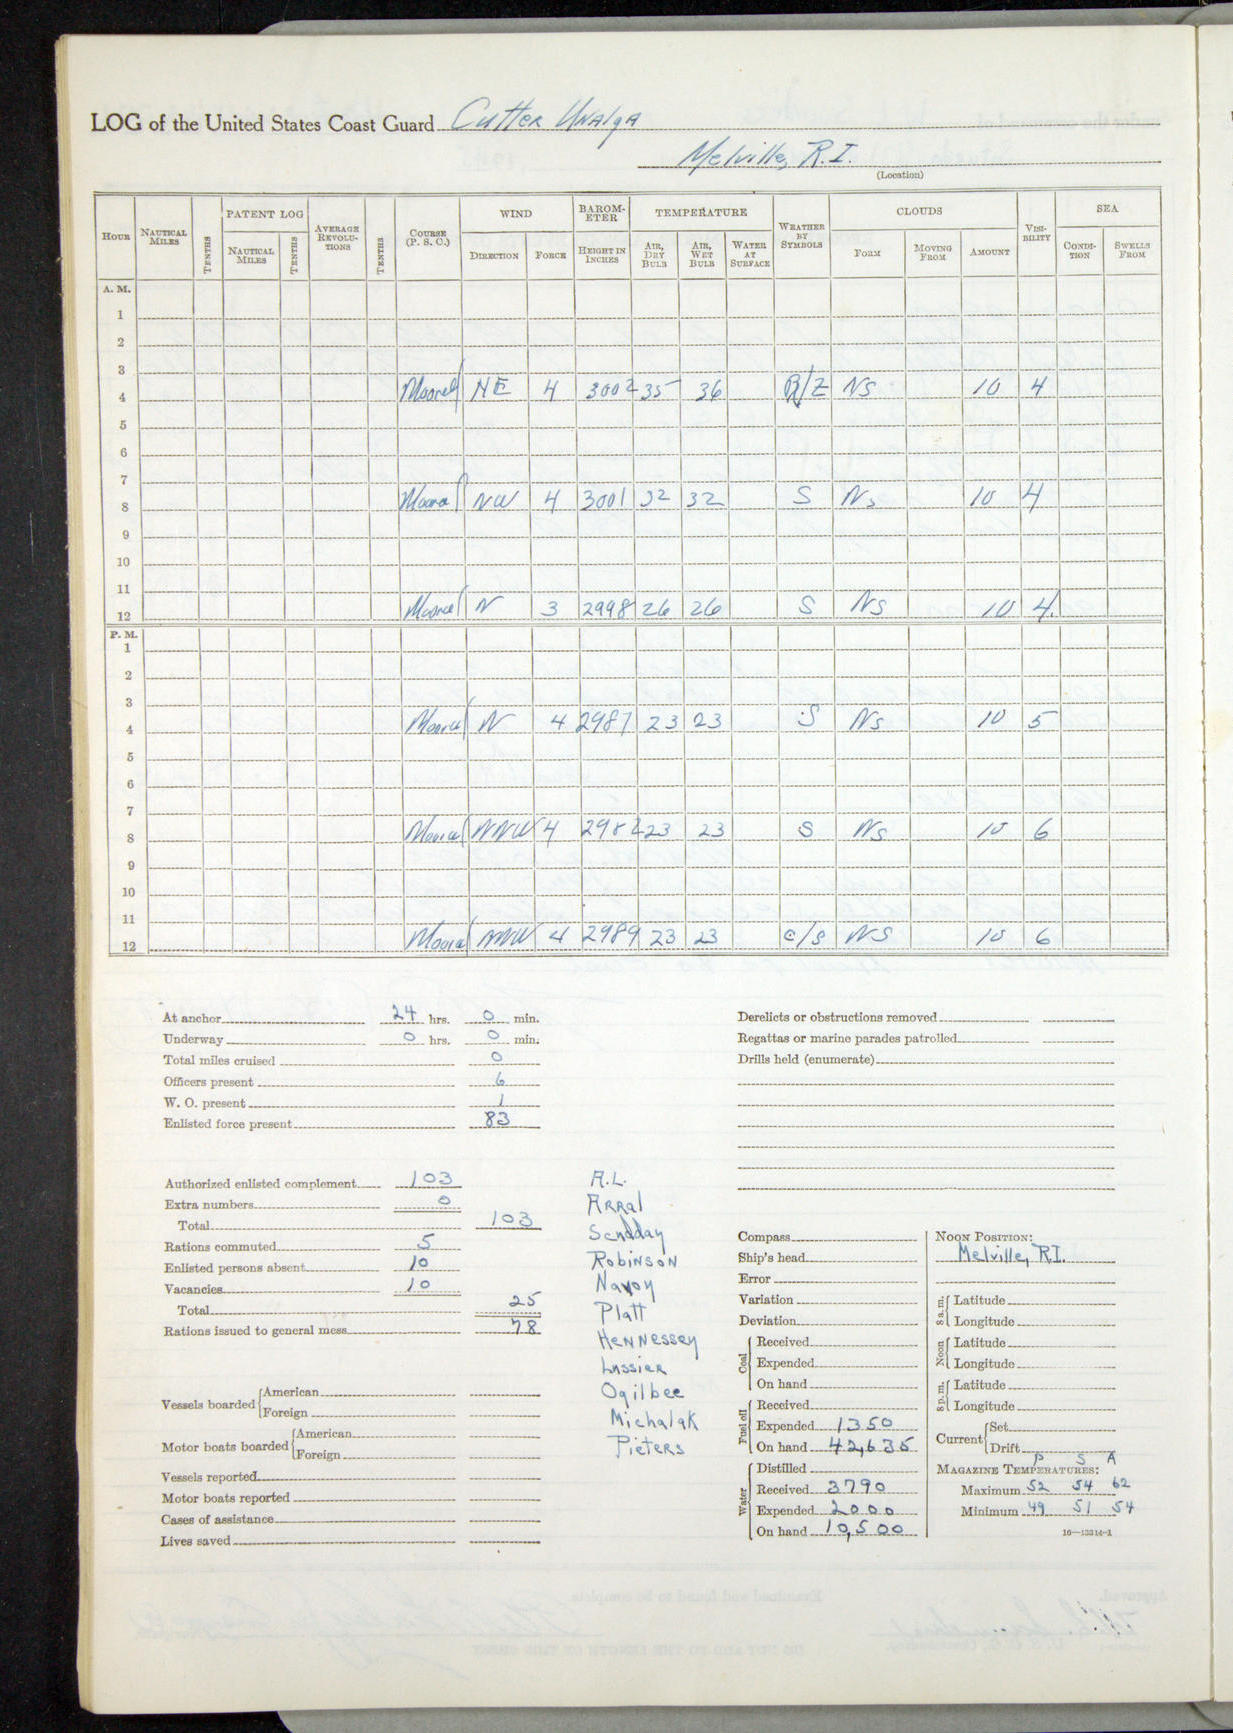 LOG of the United States Coast Guard Cutter Unalga
Melville, R.I.
(Location)
HOUR NAUTICAL MILES TENTHS PATENT LOG NAUTICAL MILES TENTHS AVERAGE REVOLU-TIONS TENTHS COURSE (P. S. C.) WIND DIRECTION FORCE BAROM-ETER HEIGHT IN INCHES TEMPERATURE AIR, DRY BULB AIR, WET BULB WATER AT SURFACE WEATHER BY SYMBOLS CLOUDS FORM MOVING FROM AMOUNT VISI-BILITY SEA CONDI-TION SWELLS FROM
A. M.
1
2
3
4 Moored NE 4 3002 35 36 R/Z NS 10 4
5
6
7
8 Moored NW 4 3001 32 32 S NS 10 4
9
10
11
12 Moored N 3 2998 26 26 S NS 10 4.
P. M.
1
2
3
4 Moored N 4 2987 23 23 S NS 10 5
5
6
7
8 Moored NNW 4 2982 23 23 S NS 10 6
9
10
11
12 Moored NNW 4 2989 23 23 C/S NS 10 6
At anchor 24 hrs. 0 min.
Underway 0 hrs. 0 min.
Total miles cruised 0
Officers present 6
W. O. present 1
Enlisted force present 83
Derelicts or obstructions removed
Regattas or marine parades patrolled
Drills held (enumerate)
Authorized enlisted complement 103
Extra numbers 0
Total 103
Rations commuted 5
Enlisted persons absent 10
Vacancies 10
Total 25
Rations issued to general mess 78
Vessels boarded American
Foreign
Motor boats boarded American
Foreign
Vessels reported
Motor boats reported
Cases of assistance
Lives saved
A.L.
Arral
Robinson
Navoy
Platt
Hennessey
Lussier
Ogilbee
Michalak
Pieters
Compass
Ship's head
Error
Variation
Deviation
Coal Received
Expended
On hand
Fuel oil Received
Expended 1350
On hand 42,635
Water Distilled
Received 3790
Expended 2000
On hand 10,500
NOON POSITION:
Melville, R.I.
8 a. m. Latitude
Longitude
Noon Latitude
Longitude
8 p. m. Latitude
Longitude
Current Set
Drift
P S A
MAGAZINE TEMPERATURES:
Maximum 52 54 62
Minimum 49 51 54
16—13314-1